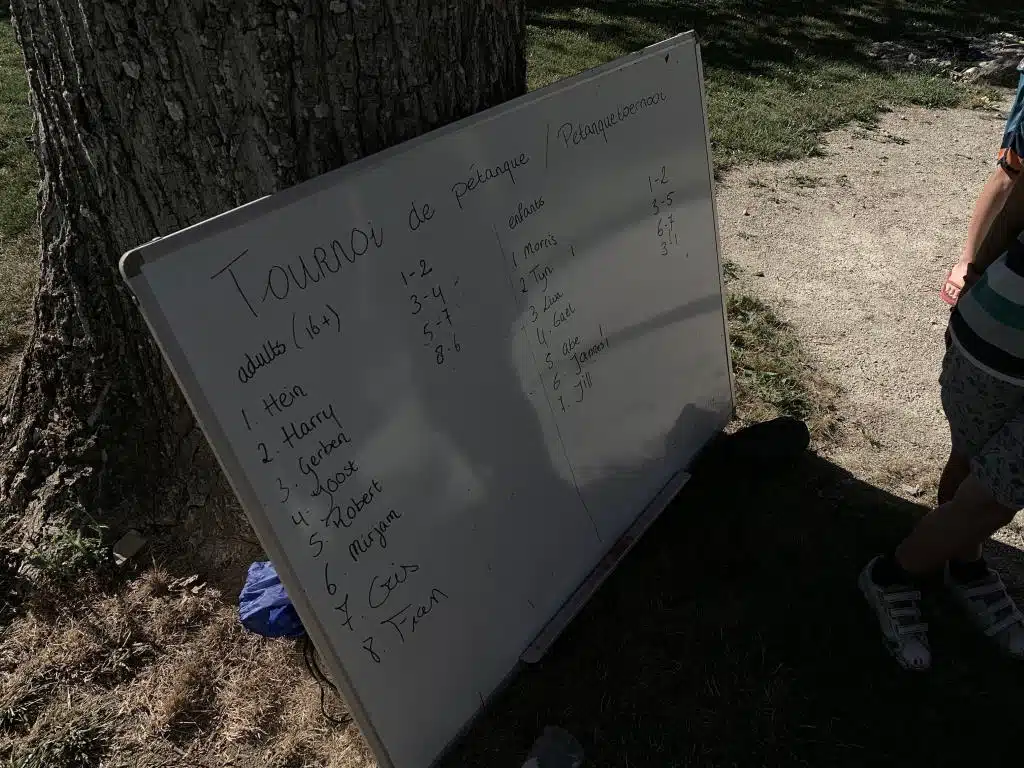 Tournoi de pétanque / Petanquetoernooi
adults (16+)
1-2
3-4
5-7
8-6
1. Hein
2. Harry
3. Gerben
4. Joost
5. Robert
6. Mirjam
7. Cris
8. Fran
enfants
1-2
3-5
6-7
3-1
1 Morris
2 Tyn
3 Lux
4. Gaël
5. abe
6. James
7. Jill